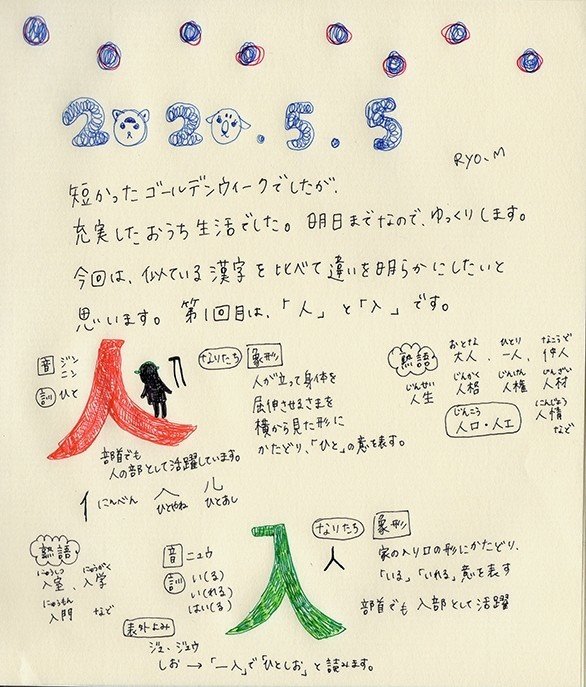 2020.5.5
RYO.M
短かったゴールデンウィークでしたが、
充実したおうち生活でした。明日までなので、ゆっくりします。
今回は、似ている漢字を比べて違いを明らかにしたいと
思います。第1回目は、「人」と「入」です。
人
音 ジン
ニン
訓 ひと
なりたち 象形
人が立って身体を
屈伸させるさまを
横から見た形に
かたどり、「ひと」の意を表す。
部首でも
人の部として活躍しています。
亻にんべん 𠆢ひとやね 儿ひとあし
熟語
おとな ひとり なこうど
大人、一人、仲人
じんせい じんかく じんけん じんざい
人生 人格 人権 人材
じんこう
人口・人工
にんじょう
人情
など
入
なりたち 象形
入
家の入り口の形にかたどり、
「いる」「いれる」意を表す
部首でも 入部として活躍
音 ニュウ
訓 い(る)
い(れる)
はい(る)
熟語
にゅうしつ にゅうがく
入室 入学
にゅうもん
入門 など
表外よみ
ジュ、ジュウ
しお → 「一入」で「ひとしお」と読みます。